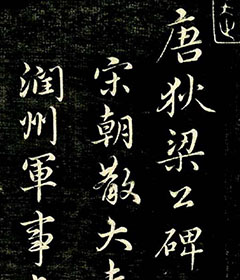 唐狄梁公碑
宋朝散大夫
潤州軍事